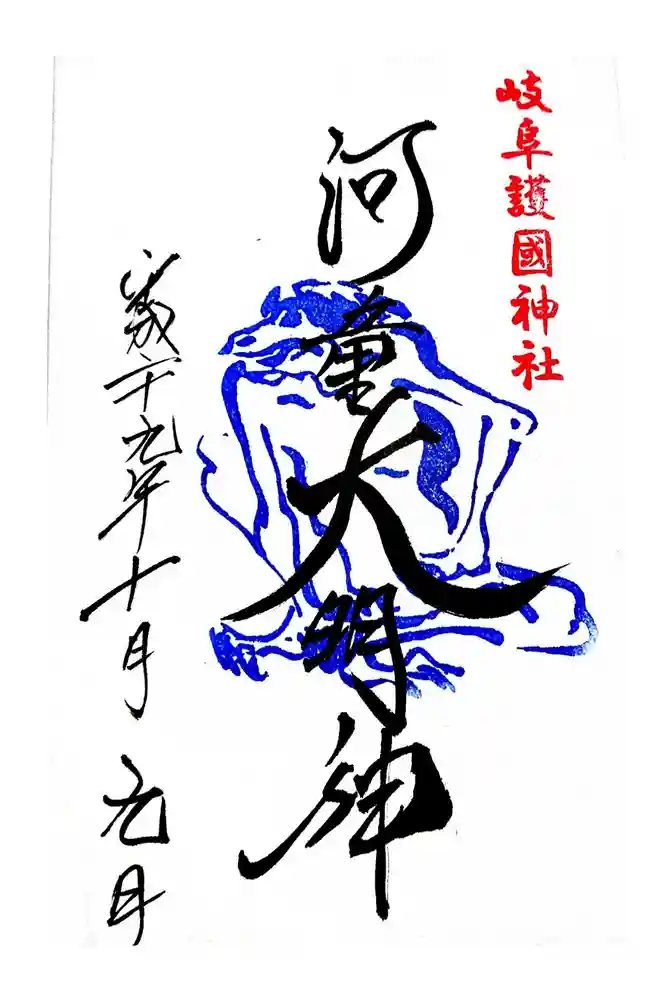 岐阜護國神社
河童大明神
平成二十九年十月九日